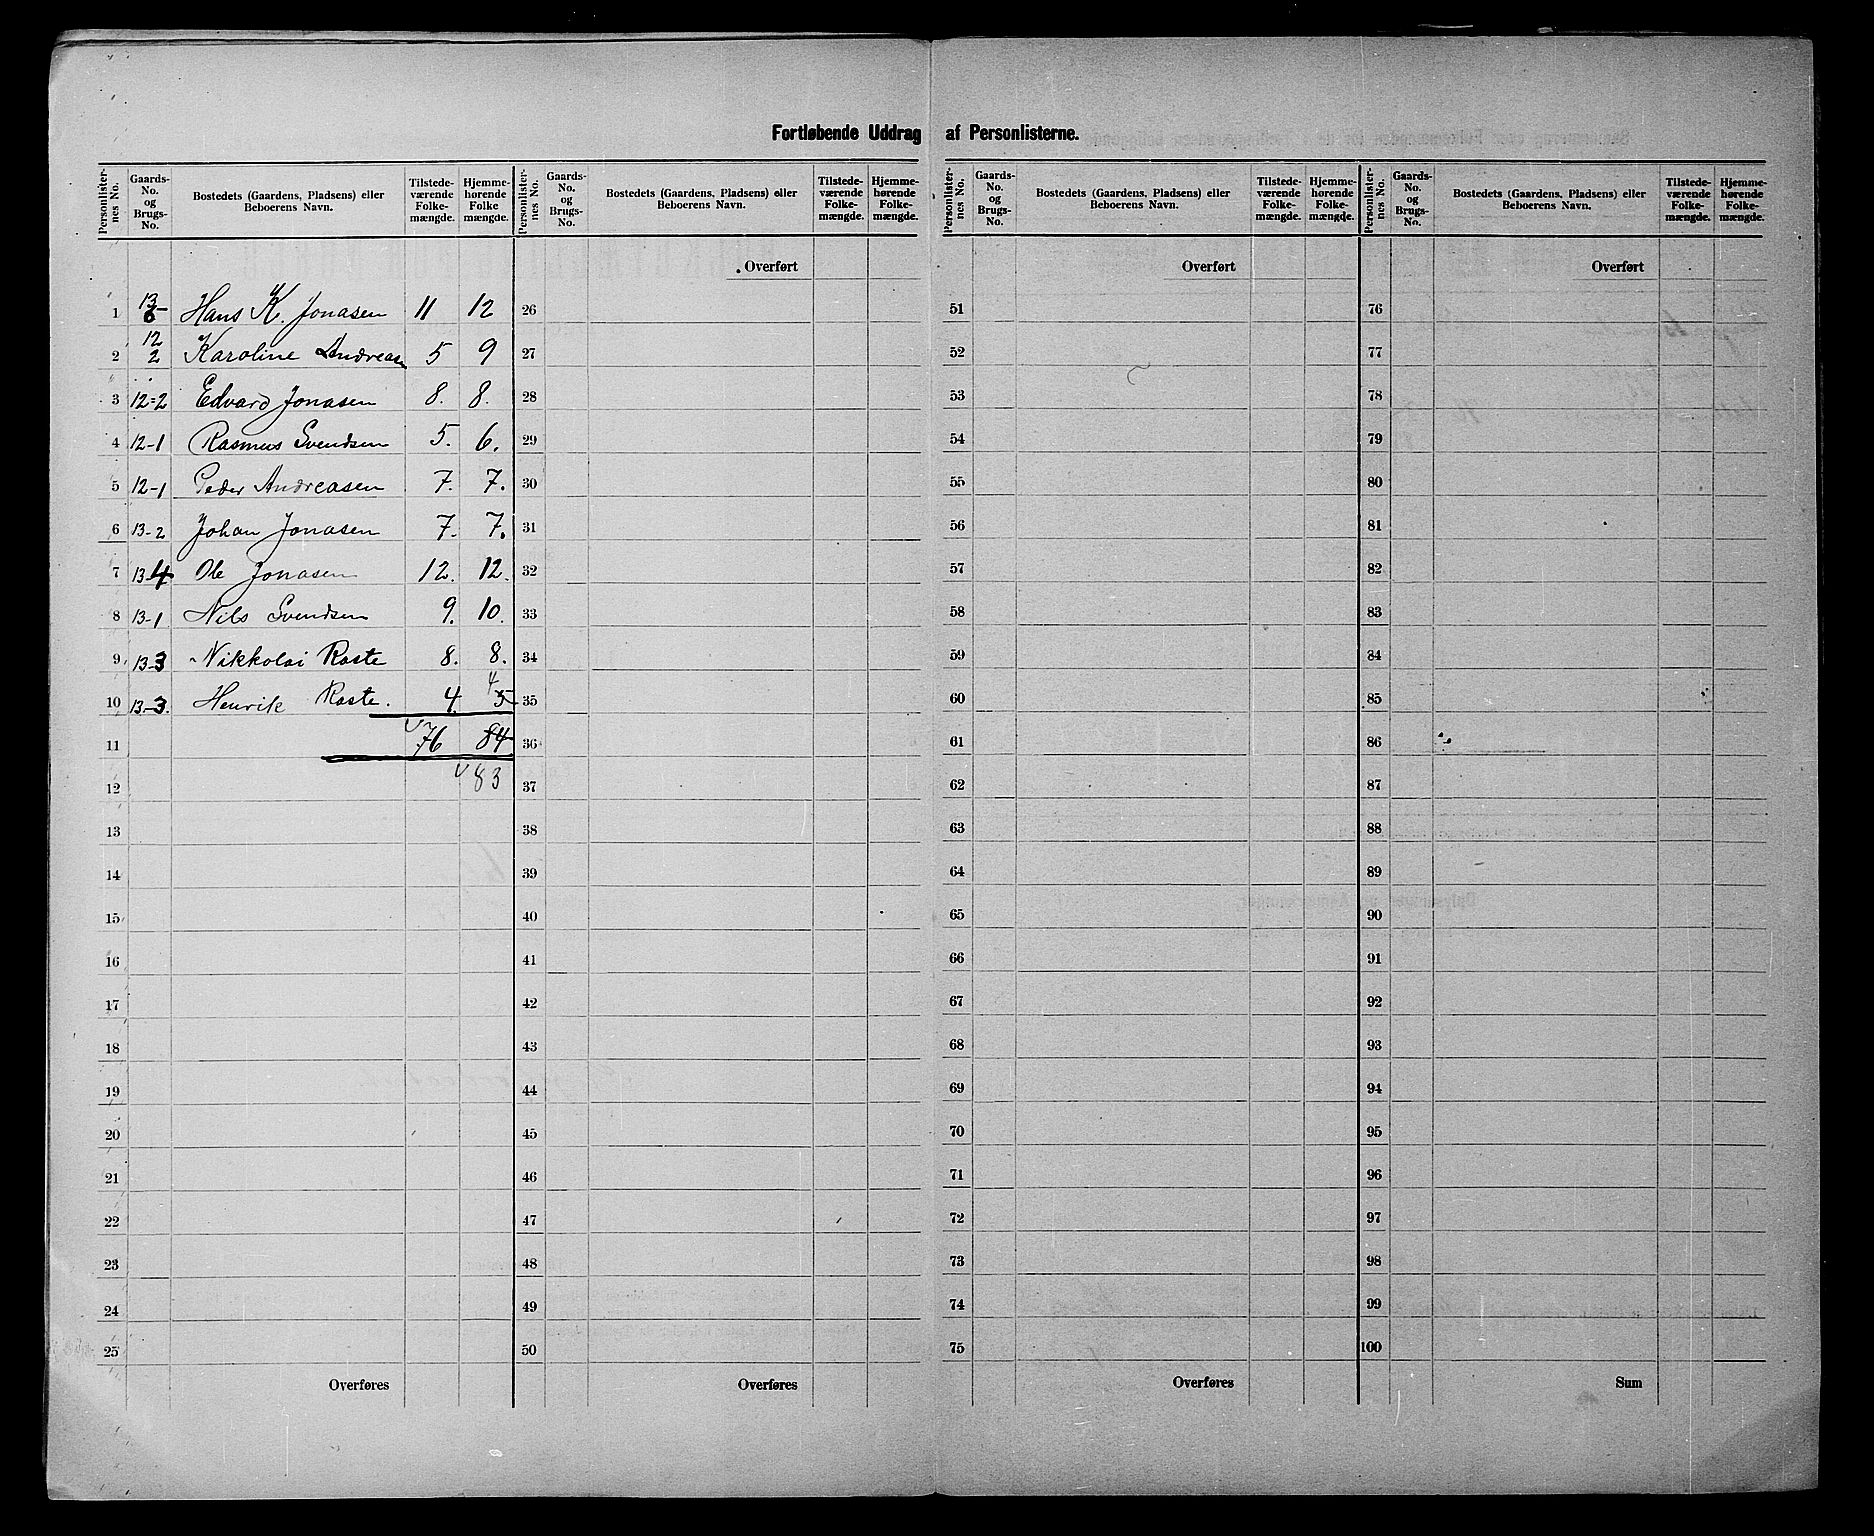 Fortløbende Uddrag af Personlisterne.
Personlister-nes No. | Gaards-No. og Brugs-No. | Bostedets (Gaardens, Pladsens) eller Beboerens Navn. | Tilstede-værende Folke-mængde. | Hjemme-hørende Folke mængde.
1 | 13-6 | Hans K. Jonasen | 11 | 12
2 | 12 2 | Karoline Andreasen | 5 | 9
3 | 12=2 | Edvard Jonasen | 8. | 8.
4 | 12-1 | Rasmus Svendsen | 5. | 6.
5 | 12-1 | Peder Andreasen | 7. | 7.
6 | 13-2 | Johan Jonasen | 7. | 7.
7 | 13-4 | Ole Jonasen | 12. | 12.
8 | 13-1 | Nils Svendsen | 9. | 10.
9 | 13-3 | Nikkolai Raste | 8. | 8.
10 | 13-3. | Henrik Raste. | 4. | 4 5
11 | 76 | 84
12 | 83
13
14
15
16
17
18
19
20
21
22
23
24
25
Overføres
Personlister-nes No. | Gaards-No. og Brugs-No. | Bostedets (Gaardens, Pladsens) eller Beboerens Navn. | Tilstede-værende Folke-mængde. | Hjemme-hørende Folke-mængde.
Overført
26
27
28
29
30
31
32
33
34
35
36
37
38
39
40
41
42
43
44
45
46
47
48
49
50
Overføres
Personlister-nes No. | Gaards-No. og Brugs-No. | Bostedets (Gaardens, Pladsens) eller Beboerens Navn. | Tilstede-værende Folke-mængde. | Hjemme-hørende Folke-mængde.
Overført
51
52
53
54
55
56
57
58
59
60
61
62
63
64
65
66
67
68
69
70
71
72
73
74
75
Overføres
Personlister-nes No. | Gaards-No. og Brugs-No. | Bostedets (Gaardens, Pladsens) eller Beboerens Navn. | Tilstede-værende Folke-mængde. | Hjemme-hørende Folke-mængde.
Overført
76
77
78
79
80
81
82
83
84
85
86
87
88
89
90
91
92
93
94
95
96
97
98
99
100
Sum